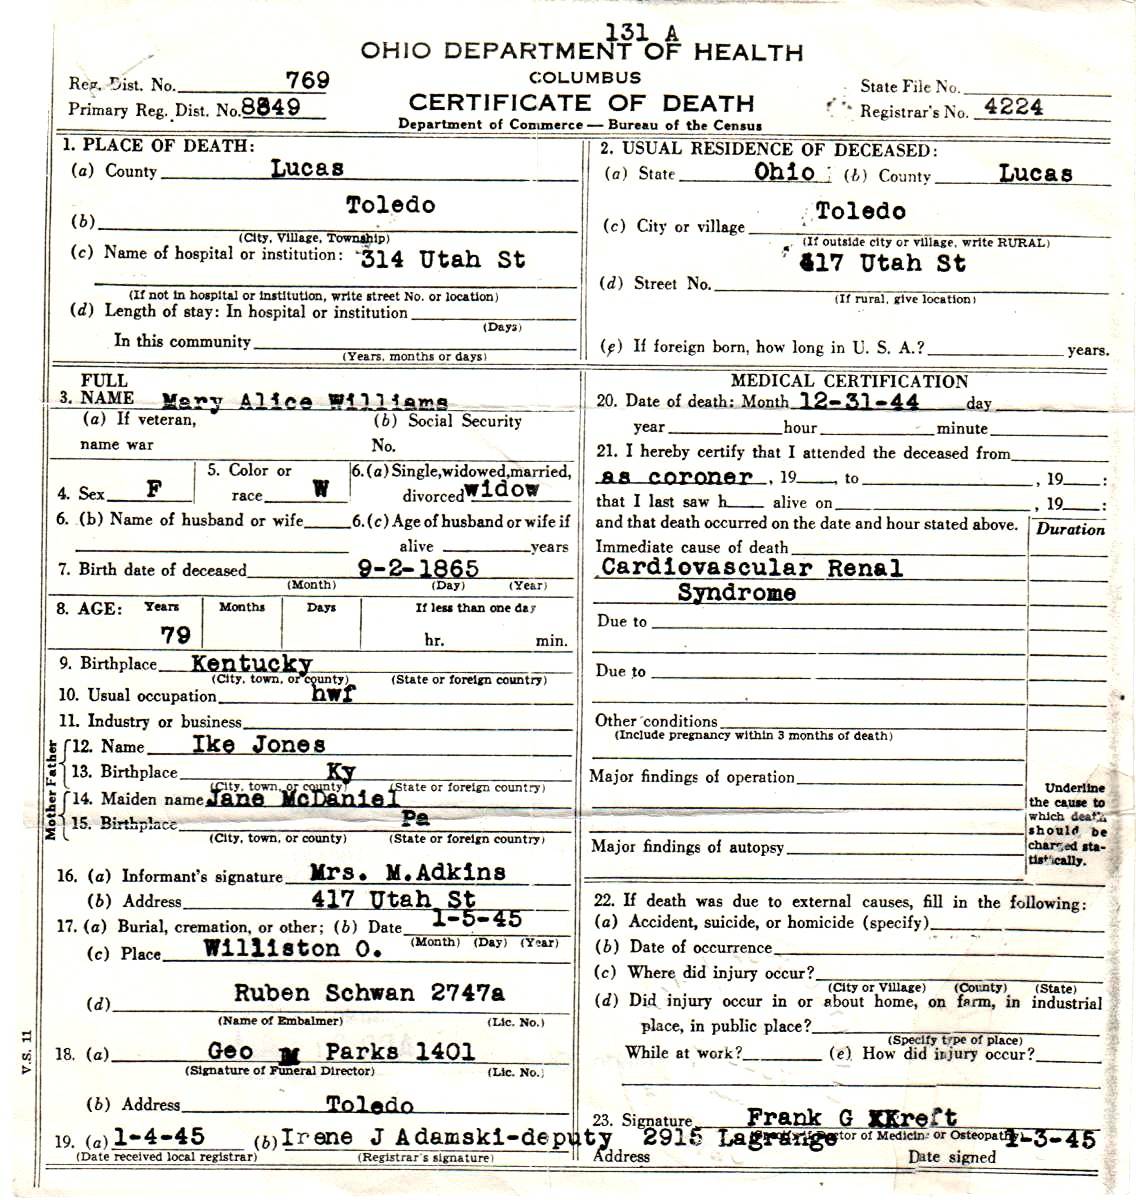 131 A
OHIO DEPARTMENT OF HEALTH
COLUMBUS
CERTIFICATE OF DEATH
Department of Commerce — Bureau of the Census
Reg. Dist. No. 769
Primary Reg. Dist. No. 8849
State File No.
Registrar's No. 4224
1. PLACE OF DEATH:
(a) County Lucas
(b) Toledo
(City, Village, Township)
(c) Name of hospital or institution: 314 Utah St
(If not in hospital or institution, write street No. or location)
(d) Length of stay: In hospital or institution
(Days)
In this community
(Years, months or days)
2. USUAL RESIDENCE OF DECEASED:
(a) State Ohio (b) County Lucas
(c) City or village Toledo
(If outside city or village, write RURAL)
(d) Street No. 417 Utah St
(If rural, give location)
(e) If foreign born, how long in U. S. A.? years.
3. FULL NAME Mary Alice Williams
(a) If veteran, name war
(b) Social Security No.
4. Sex F
5. Color or race W
6. (a) Single, widowed, married, divorced widow
6. (b) Name of husband or wife
6. (c) Age of husband or wife if alive years
7. Birth date of deceased 9-2-1865
(Month) (Day) (Year)
8. AGE: Years Months Days If less than one day
79 hr. min.
9. Birthplace Kentucky
(City, town, or county) (State or foreign country)
10. Usual occupation hwf
11. Industry or business
Father
12. Name Ike Jones
13. Birthplace Ky
(City, town, or county) (State or foreign country)
Mother
14. Maiden name Jane McDaniel
15. Birthplace Pa
(City, town, or county) (State or foreign country)
16. (a) Informant's signature Mrs. M.Adkins
(b) Address 417 Utah St
17. (a) Burial, cremation, or other; (b) Date 1-5-45
(Month) (Day) (Year)
(c) Place Williston O.
(d) Ruben Schwan 2747a
(Name of Embalmer) (Lic. No.)
18. (a) Geo M Parks 1401
(Signature of Funeral Director) (Lic. No.)
(b) Address Toledo
19. (a) 1-4-45 (b) Irene J Adamski-deputy
(Date received local registrar) (Registrar's signature)
V.S. 11
MEDICAL CERTIFICATION
20. Date of death: Month 12-31-44 day
year hour minute
21. I hereby certify that I attended the deceased from
as coroner , 19 , to , 19 :
that I last saw h alive on , 19 :
and that death occurred on the date and hour stated above.
Duration
Immediate cause of death
Cardiovascular Renal
Syndrome
Due to
Due to
Other conditions
(Include pregnancy within 3 months of death)
Major findings of operation
Major findings of autopsy
Underline
the cause to
which death
should be
charged sta-
tistically.
22. If death was due to external causes, fill in the following:
(a) Accident, suicide, or homicide (specify)
(b) Date of occurrence
(c) Where did injury occur?
(City or Village) (County) (State)
(d) Did injury occur in or about home, on farm, in industrial
place, in public place?
(Specify type of place)
While at work? (e) How did injury occur?
23. Signature Frank G XKreft
2915 Lagrange 1-3-45
Doctor of Medicine or Osteopathy
Address Date signed